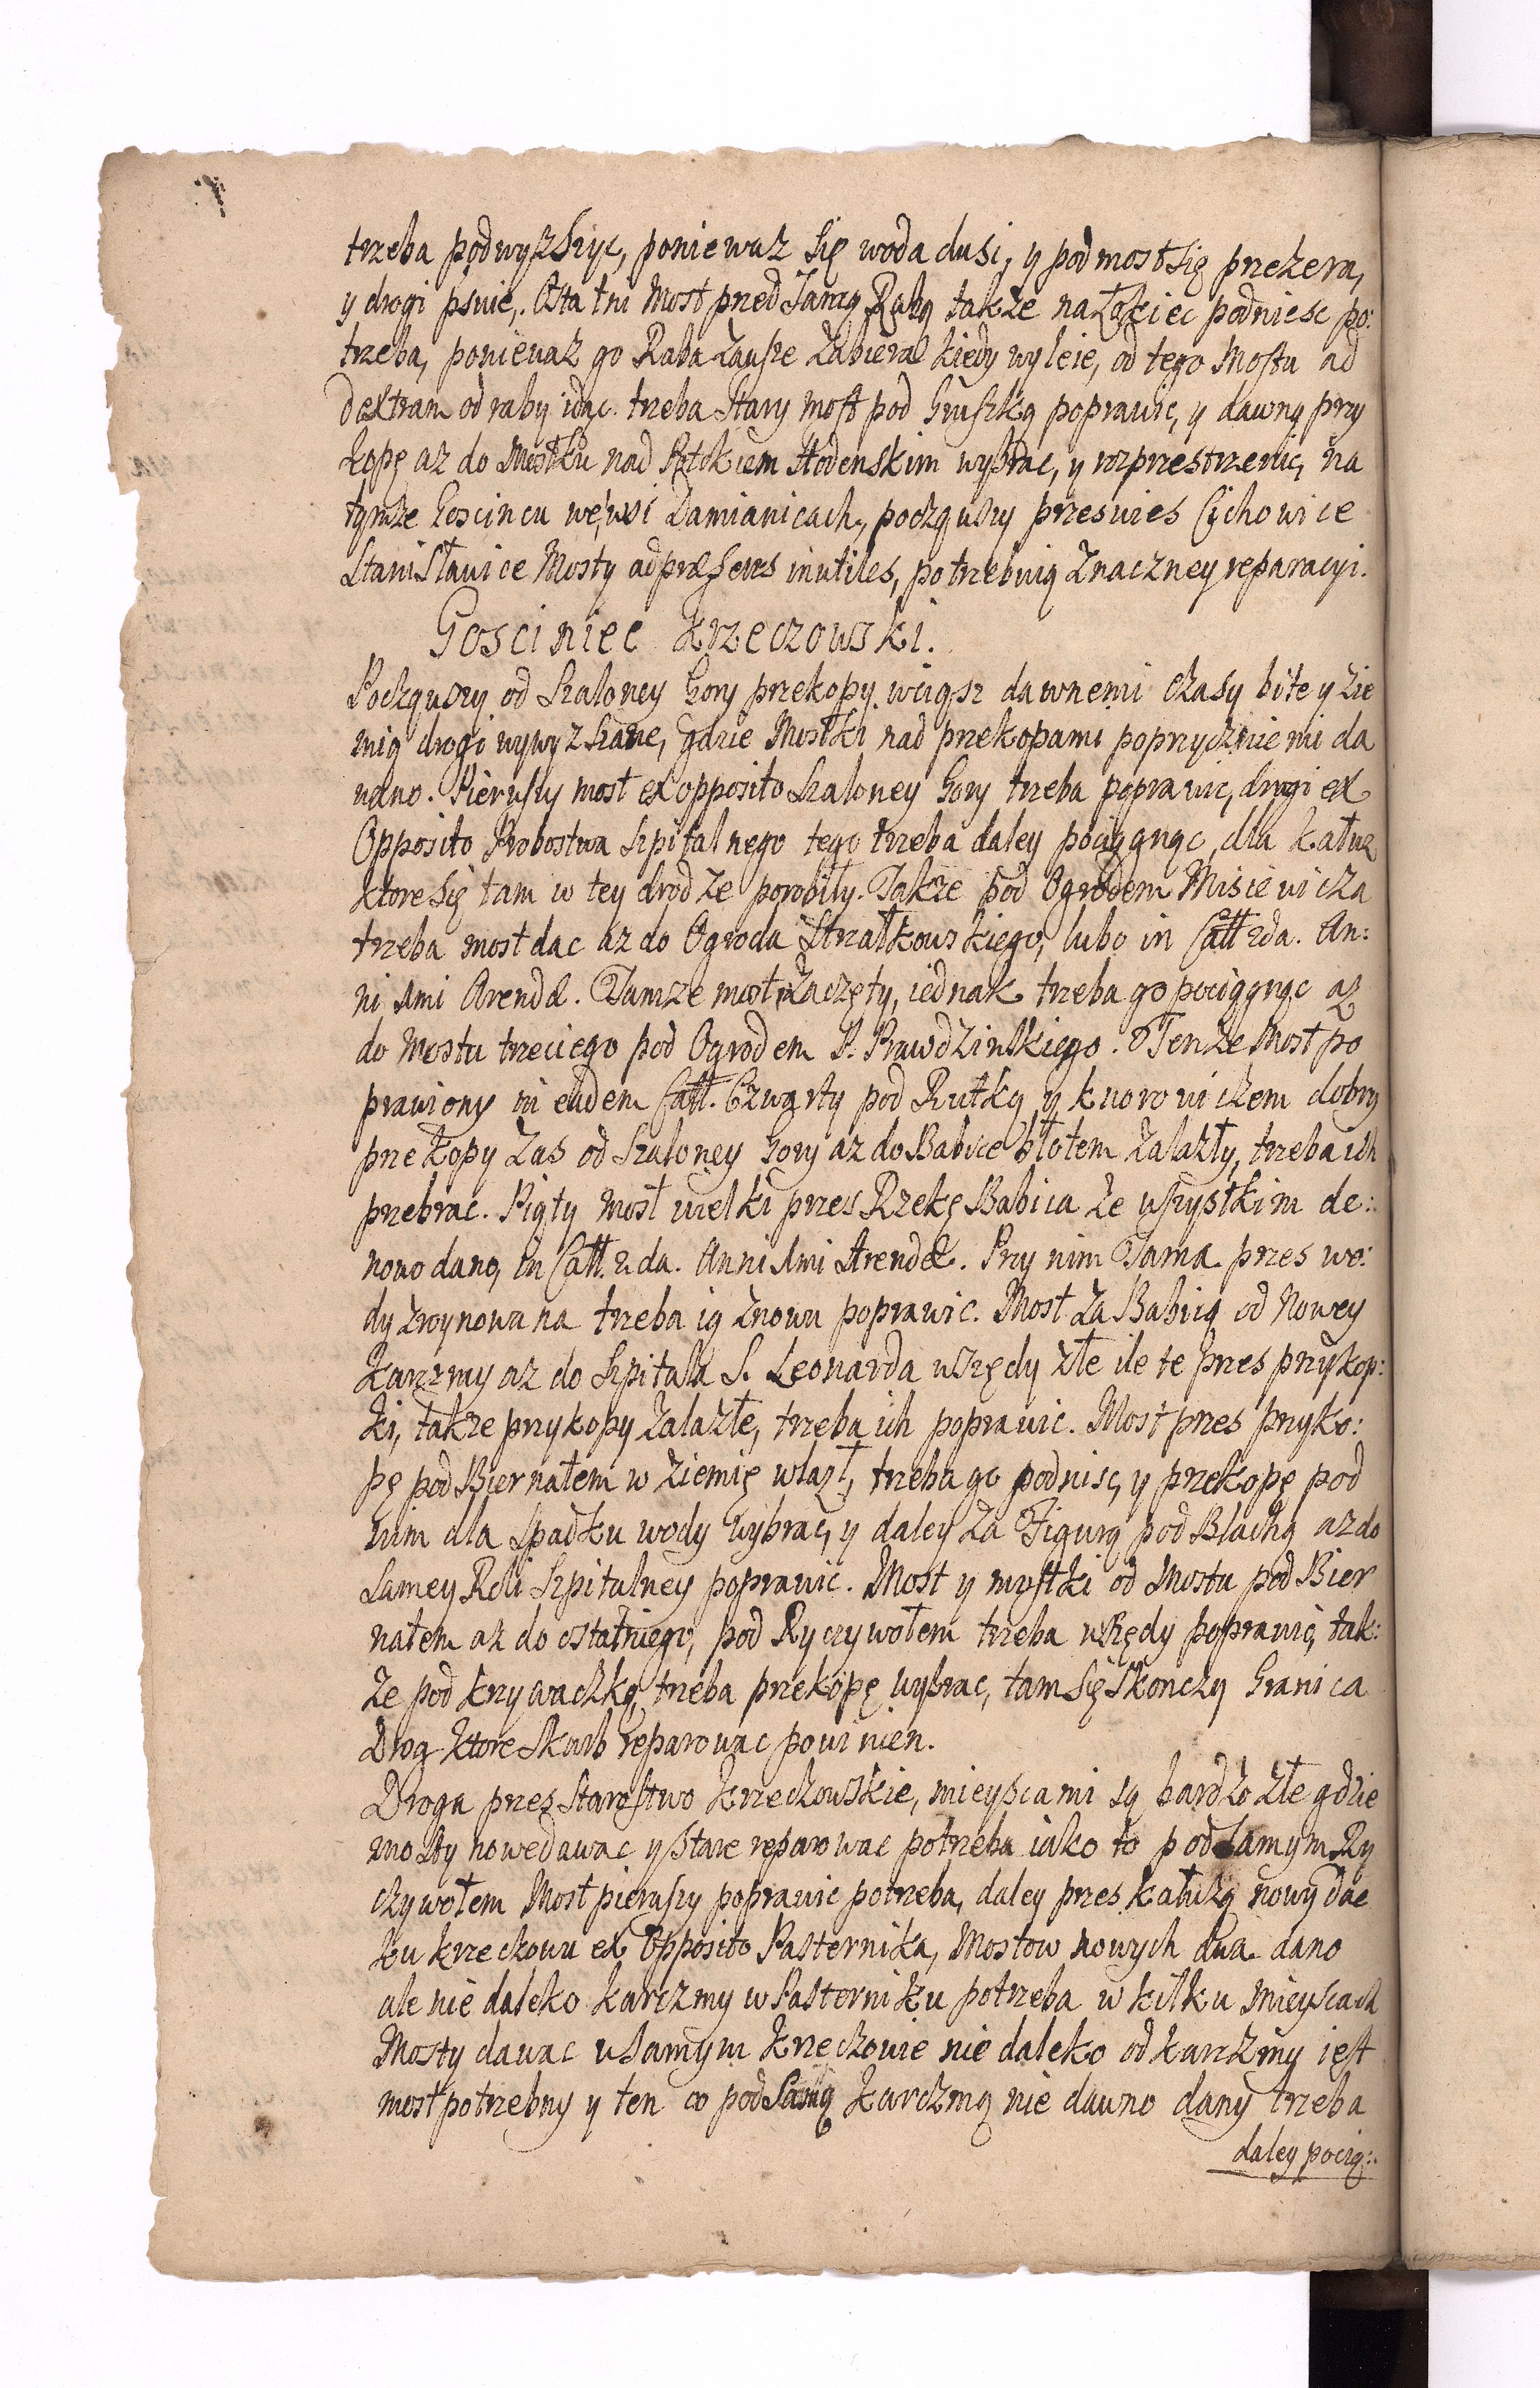 trzeba podwyzszyc, poniewaz się woda dusi, y pod most się przezera,
y drogi psuie,. Ostatni Most przed samą Rabą także na Łokiec podniesc po:
trzeba, ponieuaz go Raba zausze zabiera kiedy wyleie, od tego Mostu ad
dextram od raby idąc trzeba stary most pod Gruszką poprawic, y dawną przy
kopę az do Mostku nad Potokiem wybrac, y rozprzestrzenic, na
tymze Goscincu we wsi Damianicach, począwszy przes wies Cichowice
Stanisławice Mosty ad præsens inutiles, potrzebuią znaczney reparacyi.
Gosciniec Krzeczowski.
Począwszy od Szaloney Gory przekopy wciąsz dawnemi czasy bite y zie
mią drogi wywyzszane, gdzie Mostki nad przekopami poprzyczniemi da
wano. Pierwszy most ex opposito Szaloney Gory trzeba poprawic, drugi ex
Opposito Probostwa Szpitalnego tego trzeba daley pociągnąc, dla kałuz
ktore się tam w tey drodze porobiły. Także pod Ogrodem Misiewicza
trzeba most dac az do Ogroda Strzałkowskiego, lubo in Catt 2da. An:
ni 1mi Arendæ. Tamze most zaczęty, iednak trzeba go pociągnąc az
do Mostu trzeciego pod Ogrodem P. Prawdzinskiego. Tenze Most po
prawiony in eadem Catt. Czwarty pod Rutką y kworowiczem dobry
przekopy zas od Szaloney Gory az do Babice błotem zalazły, trzeba ich
przebrac. Piąty most wielki przes Rzekę Babica ze wszystkim de:
nowo dano, in Catt. 2.da. Anni 1mi Arendæ. Przy nim Tama przes wo:
dy zroynowana trzeba ią znowu poprawic. Most za Babicą od Nowey
Karzmy az do Szpitala S. Leonarda wszędy złe ile te przes przykop:
ki, takze przykopy zalazłe, trzeba ich poprawic. Most przes przyko:
pę pod Biernatem w ziemię wlazł, trzeba go podnisc, y przekopę pod
nim dla spadku wody wybrac, y daley za Figurą pod Blachą az do
samey Roli Szpitalney poprawic. Most y mostki od Mostu pod Bier
natem az do ostatniego, pod Ryczywołem trzeba wszędy poprawic, tak:
ze pod Krzywaczką, trzeba przekopę wybrac, tam się skonczy Granica
Drog ktore Skarb reparowac powinien.
Droga przes Starostwo Krzeczowskie, mieyscami są bardzo złe gdzie
mosty nowe dawac y stare reparowac potrzeba iako to pod samym Ry
czywołem Most pierwszy poprawic potrzeba, daley przes kałużą nowy dac
ku krzeczowu ex Opposito Pasternika, Mostow nowych dwa dano
ale nie daleko karczmy w Pasterniku potrzeba w kilku mieyscach
Mosty dawac w samym Krzeczowie nie daleko od karczmy iest
most potrzebny y ten co pod samą Karczmą nie dawno dany trzeba
daley pocią: